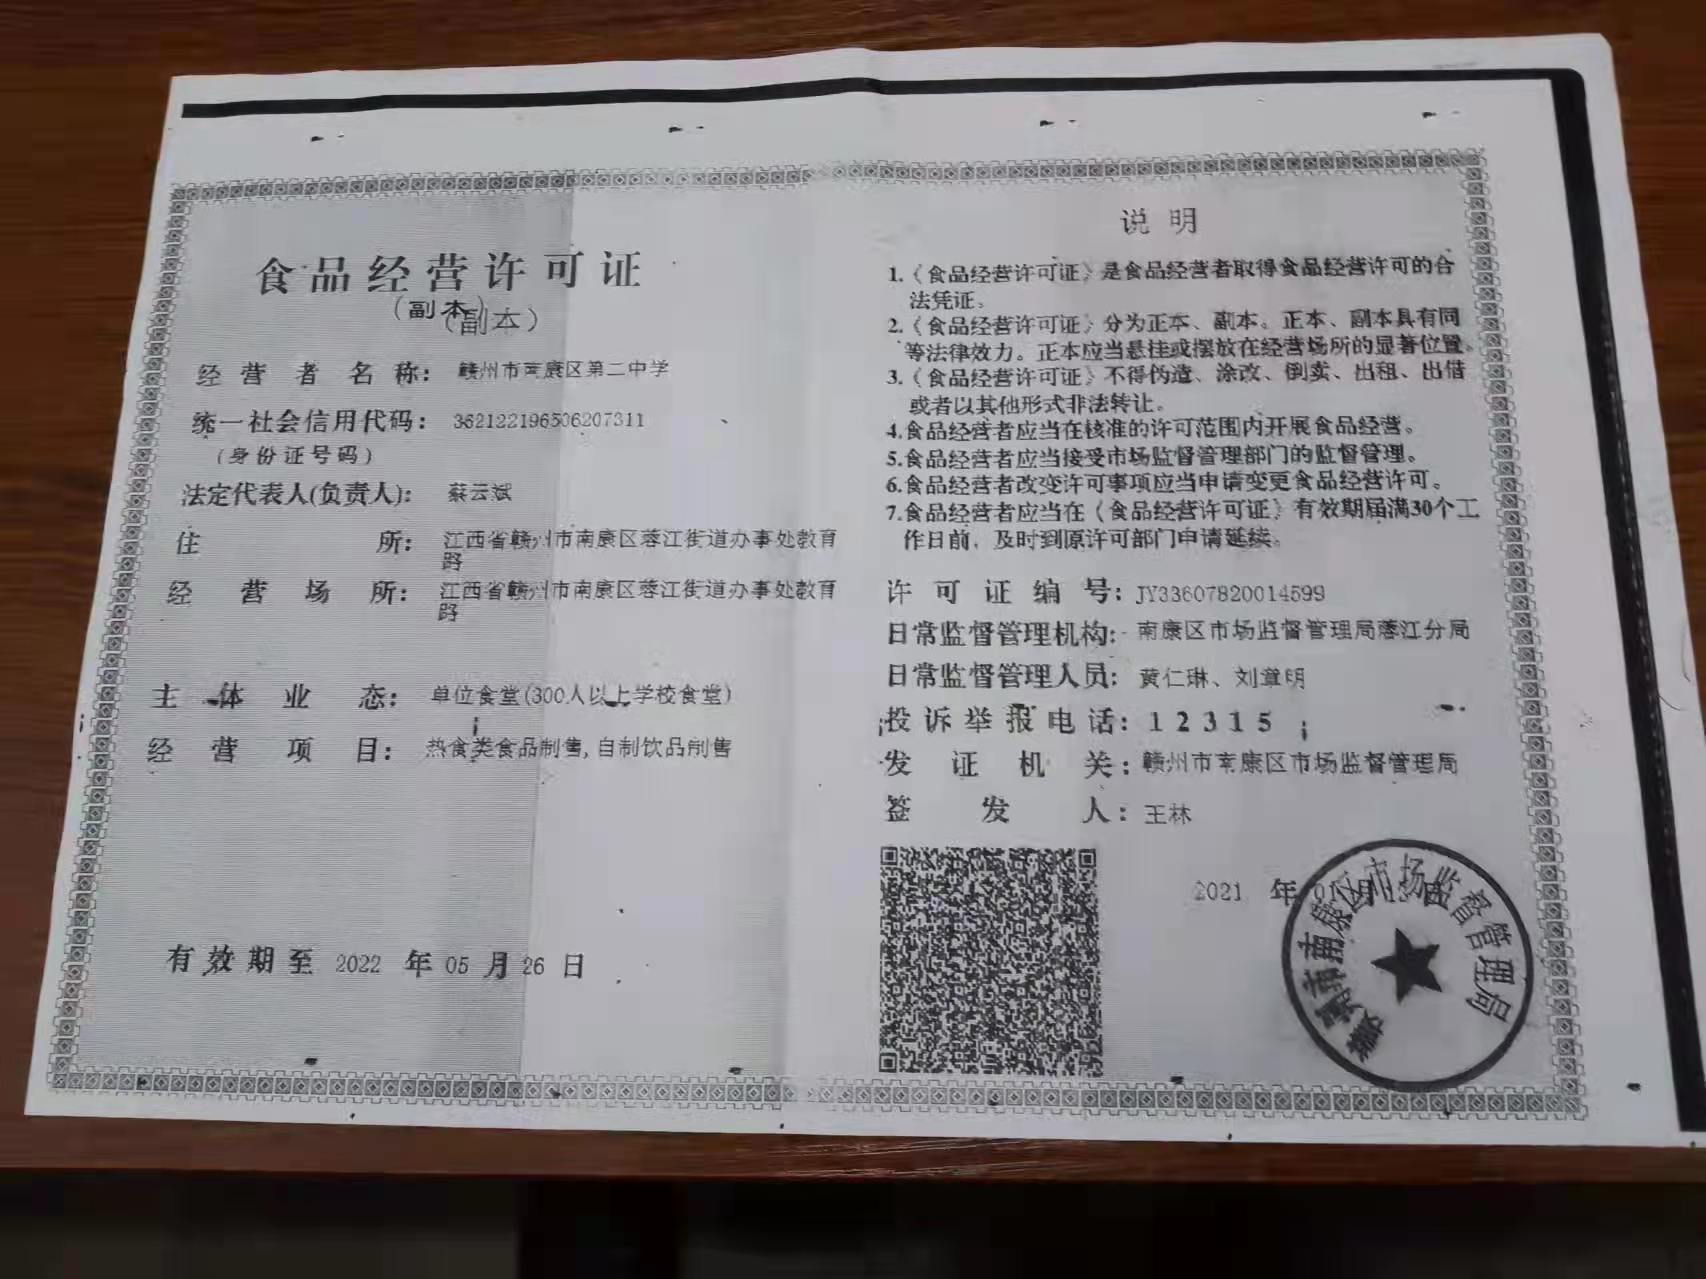 食品经营许可证
(副本)
(副本)
经营者名称：赣州市南康区第二中学
统一社会信用代码：362122196506207311
(身份证号码)
法定代表人(负责人)：蔡云斌
住所：江西省赣州市南康区蓉江街道办事处教育
路
经营场所：江西省赣州市南康区蓉江街道办事处教育
路
主体业态：单位食堂(300人以上学校食堂)
经营项目：热食类食品制售,自制饮品制售
有效期至 2022 年 05 月 26 日
说明
1.《食品经营许可证》是食品经营者取得食品经营许可的合
法凭证。
2.《食品经营许可证》分为正本、副本。正本、副本具有同
等法律效力。正本应当悬挂或摆放在经营场所的显著位置。
3.《食品经营许可证》不得伪造、涂改、倒卖、出租、出借
或者以其他形式非法转让。
4.食品经营者应当在核准的许可范围内开展食品经营。
5.食品经营者应当接受市场监督管理部门的监督管理。
6.食品经营者改变许可事项应当申请变更食品经营许可。
7.食品经营者应当在《食品经营许可证》有效期届满30个工
作日前，及时到原许可部门申请延续。
许可证编号：JY33607820014599
日常监督管理机构：南康区市场监督管理局蓉江分局
日常监督管理人员：黄仁琳、刘章明
投诉举报电话：12315
发证机关：赣州市南康区市场监督管理局
签发人：王林
2021 年 月 日
赣州市南康区市场监督管理局